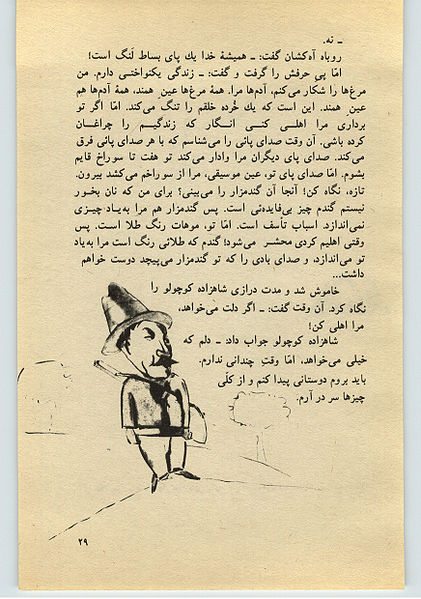 ـ نه.
روباه آه‌کشان گفت: ـ همیشهٔ خدا یك پای بساط لَنگ است!
امّا پی حرفش را گرفت و گفت: ـ زندگی یکنواختـی دارم. من
مرغ‌ها را شکار می‌کنم، آدم‌ها مرا. همهٔ مرغ‌ها عین ِ همند، همهٔ آدم‌ها هم
عین ِ همند. این است که یك خُرده خلقم را تنگ می‌کند. امّا اگر تو
برداری مرا اهلـی کنـی انـگار که زندگیـم را چراغـان
کرده باشی. آن وقت صدای پائی را می‌شناسم که با هر صدای پائی فرق
می‌کند. صدای پای دیگران مرا وادار می‌کند تو هفت تا سوراخ قایم
بشوم. امّا صدای پای تو، عین موسیقی، مرا از سوراخم می‌کشد بیرون.
تازه، نگاه کن! آنجا آن گندمزار را می‌بینی؟ برای من که نان بخور
نیستم گندم چیز بی‌فایده‌ئی است. پس گندمزار هم مرا به‌یـاد چیـزی
نمی‌اندازد. اسباب تأسف است. امّا تو، موهات رنگ طلا است. پس
وقتی اهلیم کردی محشـر می‌شود! گندم که طلائی رنگ است مرا به‌یاد
تو می‌اندازد، و صدای بادی را که تو گندمزار می‌پیچد دوست خواهم
داشت...
خاموش شد و مدت درازی شاهزاده کوچولو را
نگاه کرد. آن وقت گفت: ـ اگر دلت می‌خواهد،
مرا اهلی کن!
شاهزاده کوچولو جواب داد: ـ دلم که
خیلی می‌خواهد، امّا وقتِ چندانی ندارم.
باید بروم دوستانی پیدا کنم و از کلّی
چیزها سر در آرم.
۲۹